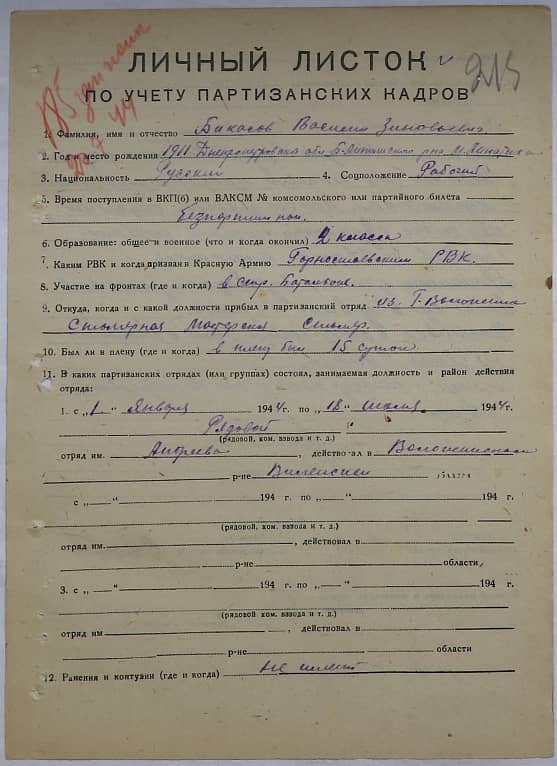 ЛИЧНЫЙ ЛИСТОК
213
ПО УЧЕТУ ПАРТИЗАНСКИХ КАДРОВ
1. Фамилия, имя и отчество Василий Зиновьевич
2. Год и место рождения 1911
3. Национальность Русский 4. Соцположение Рабочий
5. Время поступления в ВКП(б) или ВЛКСМ № комсомольского или партийного билета
Безпартийный.
6. Образование: общее и военное (что и когда окончил) 2 класса
7. Каким РВК и когда призван в Красную Армию РВК.
8. Участие на фронтах (где и когда) в
9. Откуда, когда и с какой должности прибыл в партизанский отряд из Г. Воложина
Столярная Мастерская Столяр.
10. Был ли в плену (где и когда) в плену был 15 суток
11. В каких партизанских отрядах (или группах) состоял, занимаемая должность и район действия
отряда:
1. с „1“ Января 1944 г. по „18“ июля 1944 г.
Рядовой
(рядовой, ком. взвода и т. д.)
отряд им. Андреева, действовал в Воложинском
р-не
с „ “ 194 г. по „ “ 194 г.
(рядовой, ком. взвода и т. д.)
отряд им. , действовал в
р-не области,
3. с „ “ 194 г. по „ “ 194 г.
(рядовой, ком. взвода и т. д.)
отряд им. , действовал в
р-не области
12. Ранения и контузии (где и когда) не имеет